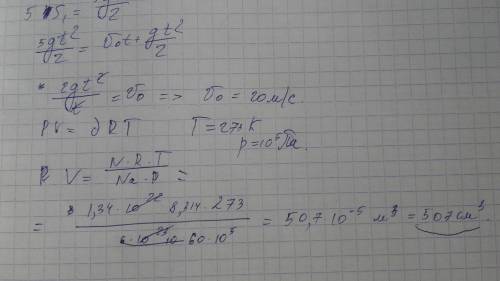 5 S₁ = gt²/2
5gt²/2 = v₀t + gt²/2
2gt²/t = v₀ => v₀ = 20 м/с.
PV = νRT T = 273 K
p = 10⁵ Па.
V = N·R·T / Na·P =
= 1,34·10²² 8,314·273 / 6·10²³ 60·10⁵ = 50,7·10⁻⁵ м³ = 507 см³